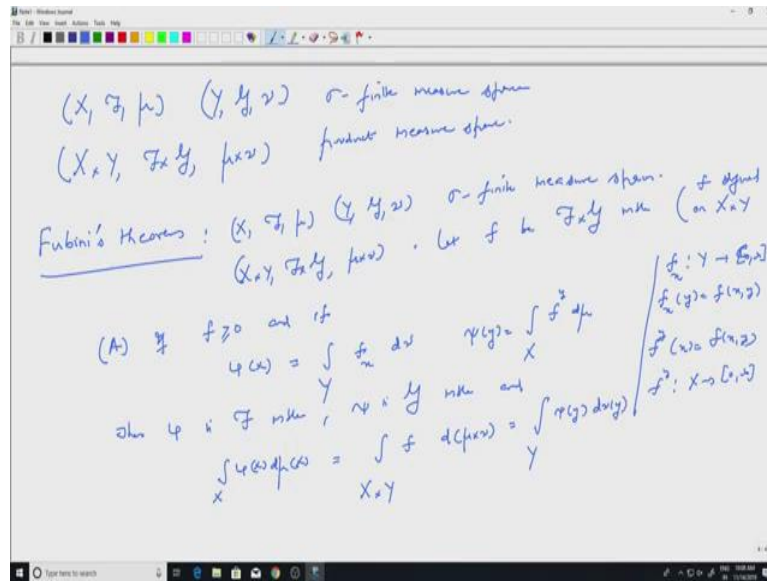 Note1 - Windows Journal
File Edit View Insert Actions Tools Help
(X, F, μ) (Y, G, ν) σ-finite measure spaces
(X×Y, F×G, μ×ν) product measure space.
Fubini's theorem : (X, F, μ) (Y, G, ν) σ-finite measure spaces.
(X×Y, F×G, μ×ν) . Let f be F×G mble (f defined on X×Y
(A) If f ≥ 0 and if
φ(x) = ∫_Y f_x dν ψ(y) = ∫_X f^y dμ
f_x : Y → [0,∞]
f_x(y) = f(x,y)
f^y(x) = f(x,y)
f^y : X → [0,∞]
Then φ is F mble, ψ is G mble and
∫_X φ(x) dμ(x) = ∫_{X×Y} f d(μ×ν) = ∫_Y ψ(y) dν(y)
Type here to search